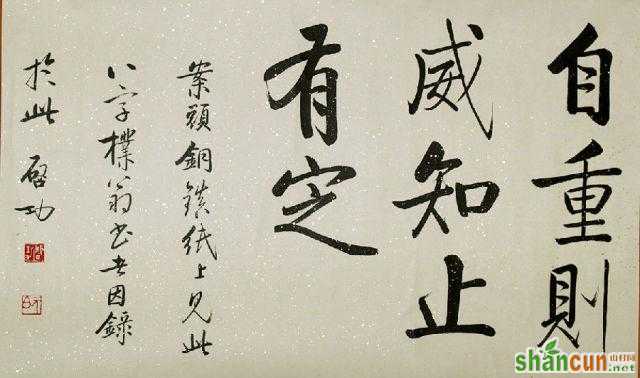 自重則
威知止
有定
案頭銅鎮紙上見此
八字樸翁書者因錄
於此 啓功
shancun 山村网
.net